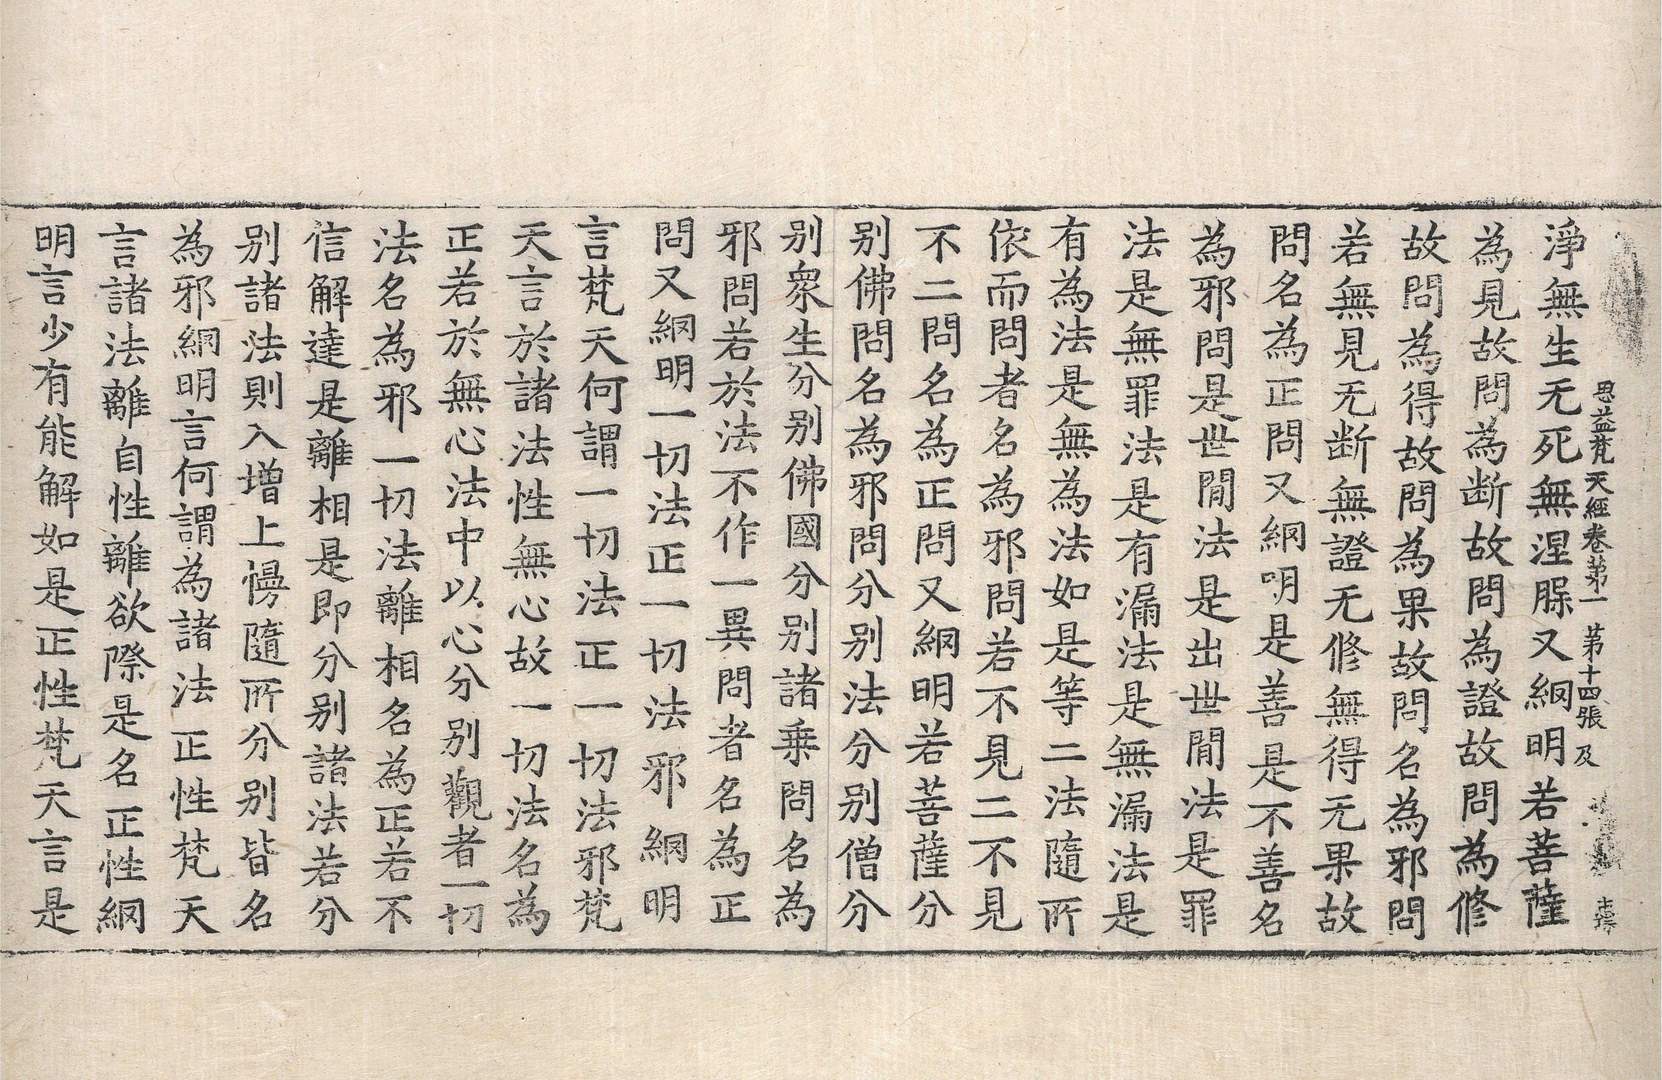 思益梵天經卷第一 第十四張 及
淨無生无死無涅槃又網明若菩薩
為見故問為断故問為證故問為修
故問為得故問為果故問名為邪問
若無見无断無證无修無得无果故
問名為正問又網明是善是不善名
為邪問是世間法是出世間法是罪
法是無罪法是有漏法是無漏法是
有為法是無為法如是等二法隨所
依而問者名為邪問若不見二不見
不二問名為正問又網明若菩薩分
别佛問名為邪問分别法分别僧分
别衆生分别佛國分别諸乘問名為
邪問若於法不作一異問者名為正
問又網明一切法正一切法邪網明
言梵天何謂一切法正一切法邪梵
天言於諸法性無心故一切法名為
正若於無心法中以心分别觀者一切
法名為邪一切法離相名為正若不
信解達是離相是即分别諸法若分
别諸法則入增上慢隨所分别皆名
為邪網明言何謂為諸法正性梵天
言諸法離自性離欲際是名正性網
明言少有能解如是正性梵天言是